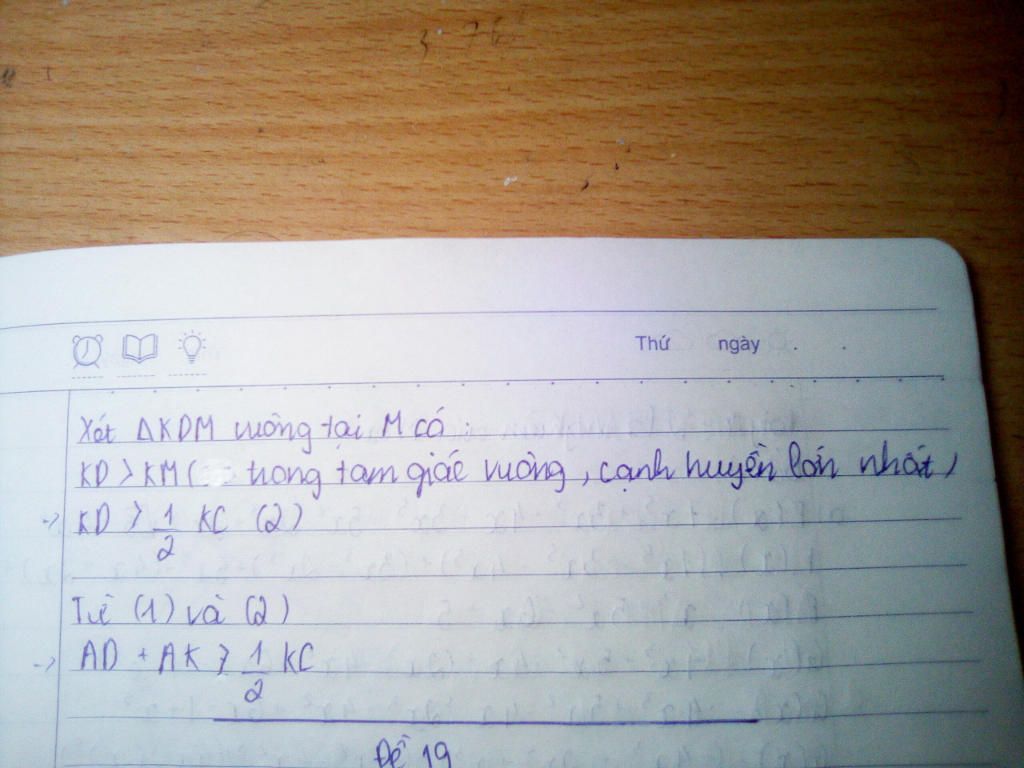 Thứ ngày . .
Xét ΔKDM vuông tại M có :
KD > KM ( trong tam giác vuông , cạnh huyền lớn nhất )
-> KD > 1/2 KC (2)
Từ (1) và (2)
-> AD + AK > 1/2 KC
Đề 19